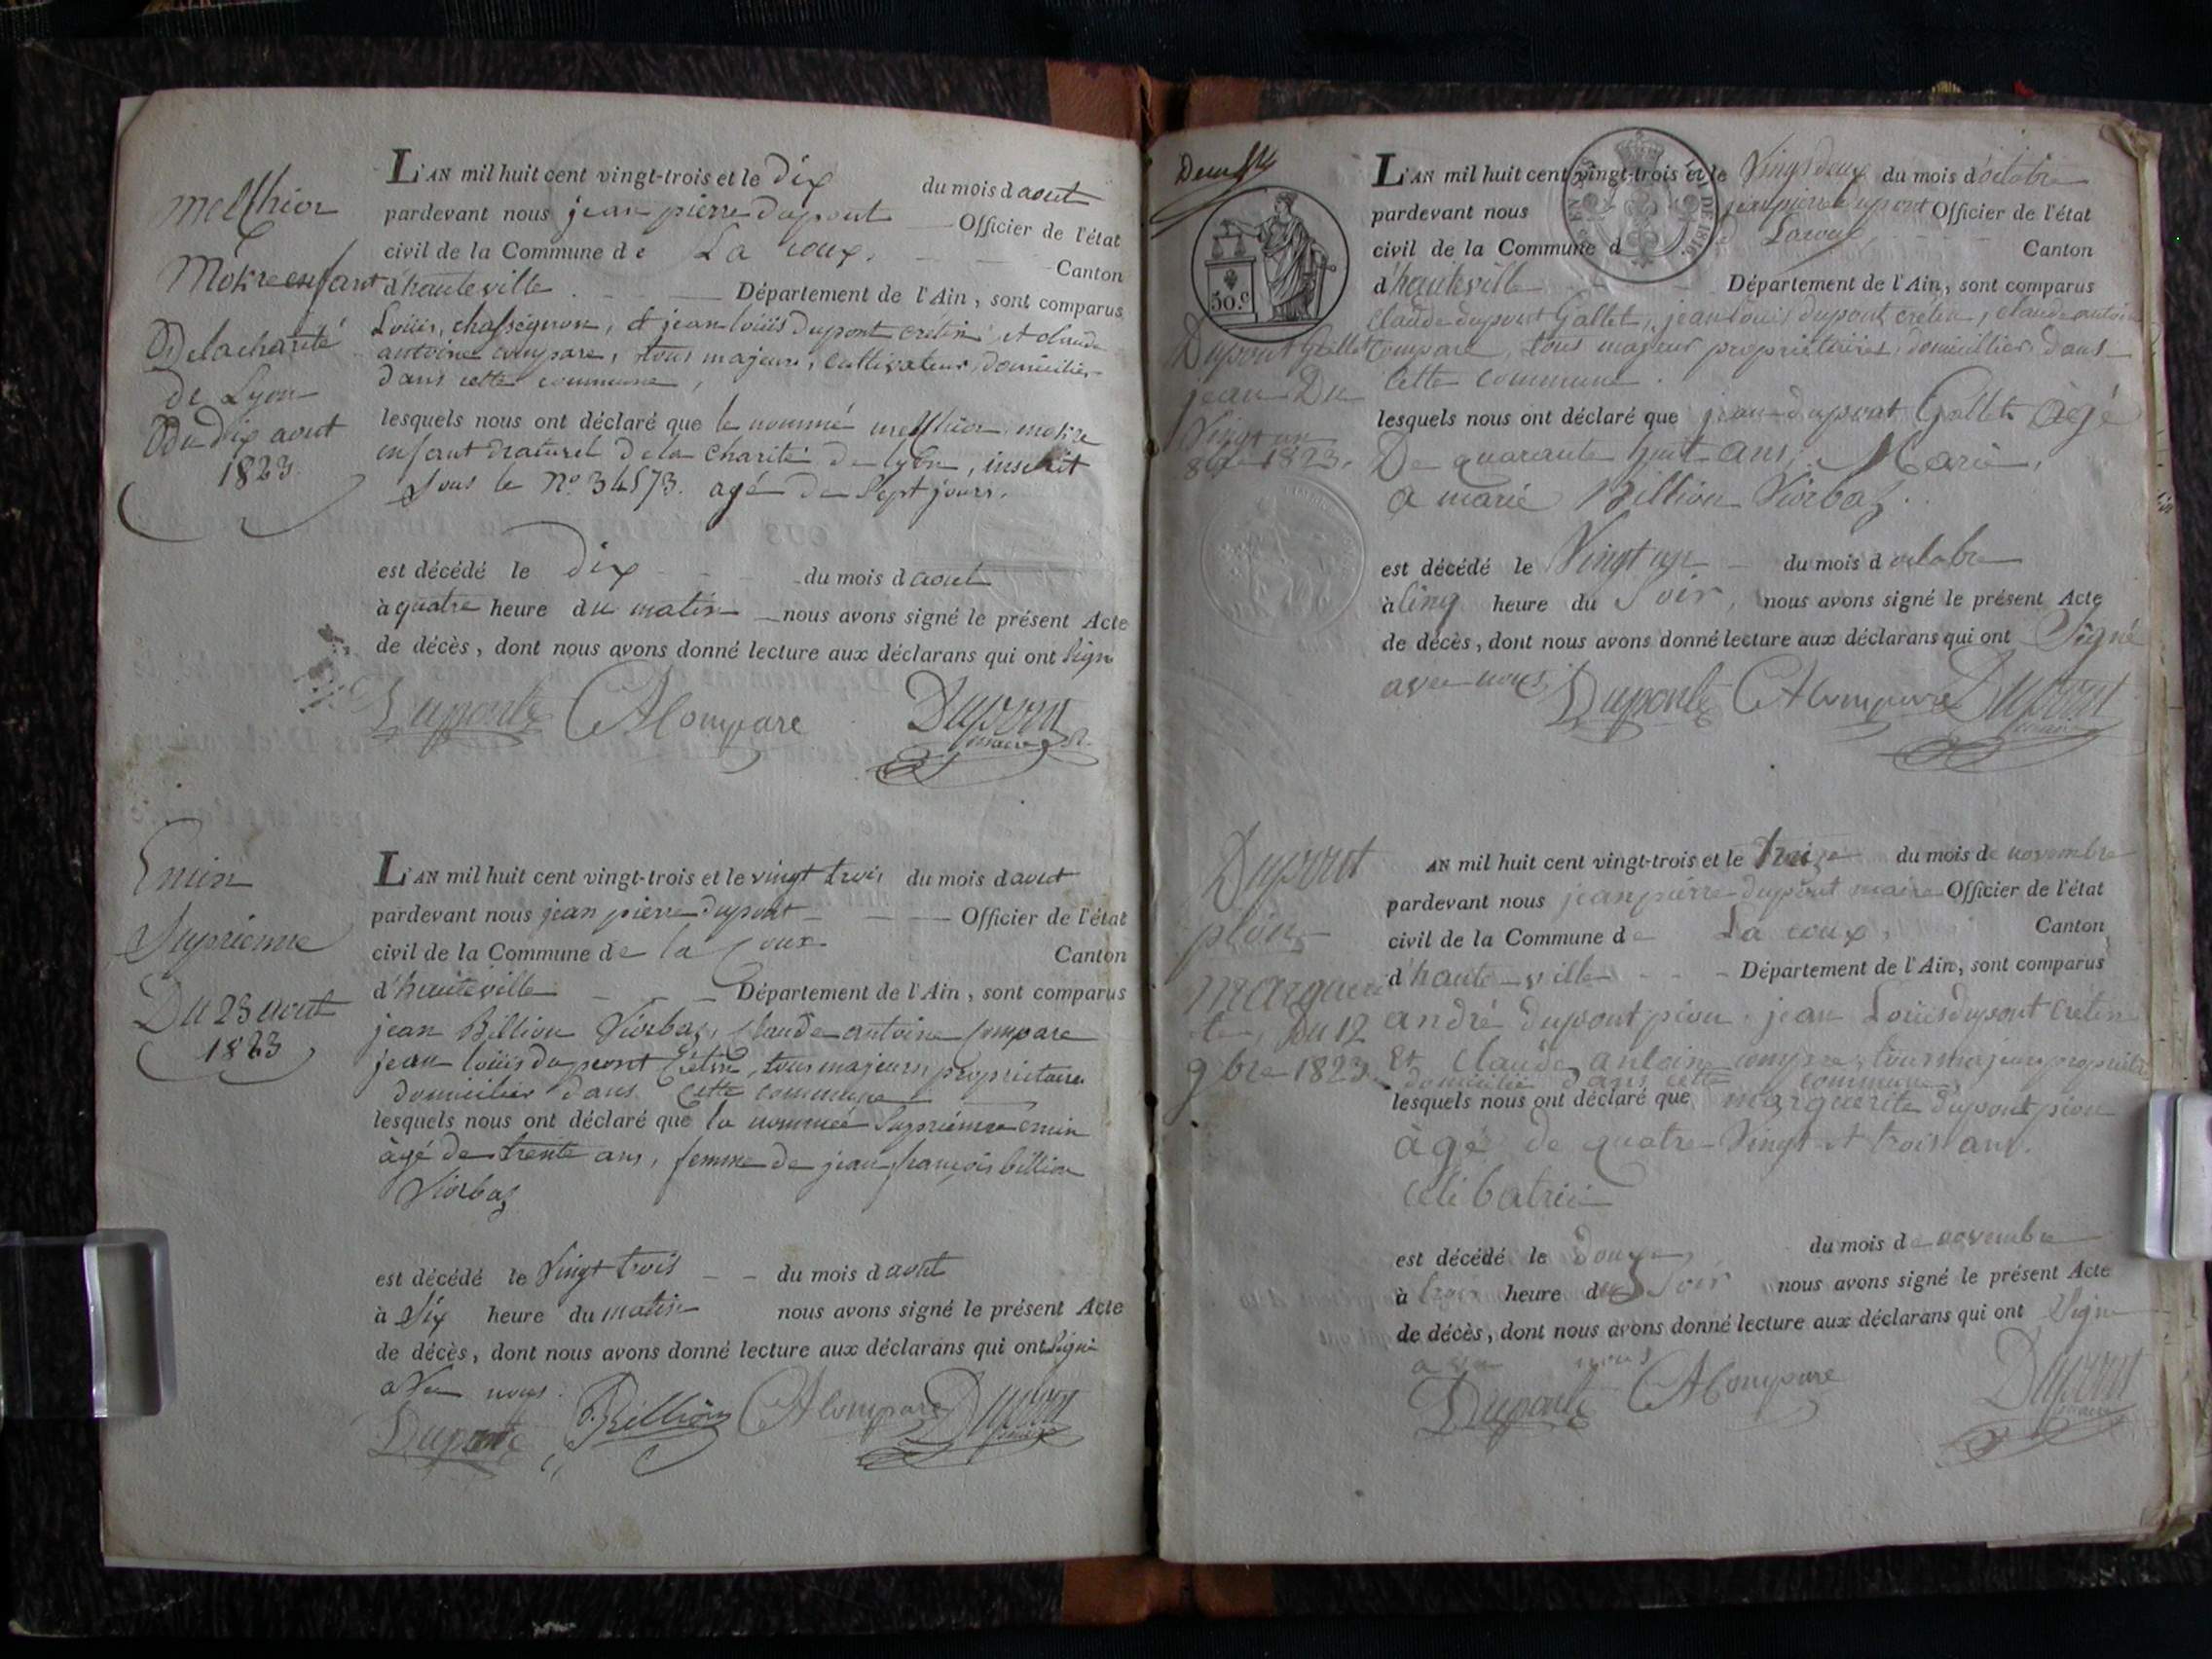 melchior
Mokre enfant
De la charité
de Lyon
Du dix aout
1823.
L'AN mil huit cent vingt-trois et le dix du mois d aout
pardevant nous jean pierre dupont Officier de l'état
civil de la Commune de La coux. Canton
d'hauteville Département de l'Ain, sont comparus
Loüis chasseignon, et jean loüis dupont cretin et claude
antoine compare, tous majeurs, cultivateur, domicilier
dans cette commune,
lesquels nous ont déclaré que le nommé melchior mokre
enfant naturel de la charité de lyon, inscrit
sous le No. 34573. agé de Sept jours.
est décédé le dix du mois d aout
à quatre heure du matin nous avons signé le présent Acte
de décès, dont nous avons donné lecture aux déclarans qui ont signé
Duponte CAcompare Dupont
maire
Emin
Supriême
Du 23 aout
1823
L'AN mil huit cent vingt-trois et le vingt trois du mois d aout
pardevant nous jean pierre dupont Officier de l'état
civil de la Commune de la coux Canton
d'hauteville Département de l'Ain, sont comparus
jean Billion Viorbaz, Claude antoine Compare
jean loüis dupont Crétin, tous majeurs proprietaires
domicilier dans cette commune
lesquels nous ont déclaré que la nommée emin
âgé de trente ans, femme de jean françois billion
Viorbaz
est décédé le Vingt trois du mois d aout
à Six heure du matin nous avons signé le présent Acte
de décès, dont nous avons donné lecture aux déclarans qui ont signé
avec nous.
Duponte Billion CAcompare Dupont
maire
50.c
DE 1816
Dupont Gallet
jean Du
Vingt un
8bre 1823.
L'AN mil huit cent vingt-trois et le Vingt deux du mois d'octobre
pardevant nous jean pierre dupont Officier de l'état
civil de la Commune d Lacoux, Canton
d'hauteville Département de l'Ain, sont comparus
Claude dupont Gallet, jean louis dupont cretin, claude antoine
Compare, tous majeur propriétaires, domicillier dans
cette commune.
lesquels nous ont déclaré que jean dupont Gallet âgé
De quarante huit ans, Marié,
a marie Billion Viorbaz.
est décédé le Vingt un du mois d octobre
à Cinq heure du Soir, nous avons signé le présent Acte
de décès, dont nous avons donné lecture aux déclarans qui ont Signé
avec nous.
Duponte CAcompare Dupont
maire
Dupont
pion
marguerite
, Du 12
9bre 1823.
AN mil huit cent vingt-trois et le treize du mois de novembre
pardevant nous jean pierre dupont maire Officier de l'état
civil de la Commune de La coux, Canton
d'haute-ville Département de l'Ain, sont comparus
andré dupont pion, jean Loüis dupont Crétin
Et Claude antoine compare, tous majeurs
domicilié dans cette commune,
lesquels nous ont déclaré que marguerite dupont pion
âgé de quatre-Vingt et trois ans.
celibatrice
est décédé le douze, du mois de novembre
à trois heure du Soir nous avons signé le présent Acte
de décès, dont nous avons donné lecture aux déclarans qui ont Signé
avec nous
Duponte CAcompare Dupont
maire